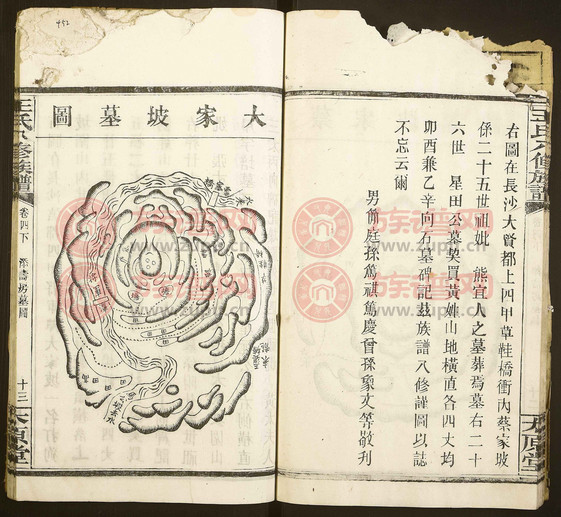 右圖在長沙大賢都上四甲草鞋橋衝內蔡家坡
係二十五世祖妣　熊宜人之墓葬焉墓右二十
六世　星田公墓契買黃姓山地橫直各四丈均
卯酉兼乙辛向右墓碑記茲族譜八修謹圖以誌
不忘云爾
男飾庭孫篤祺篤慶曾孫象文等敬刊
王氏八修族譜
太原堂
大家坡墓圖
王氏八修族譜
卷四下
墓圖
十三
太原堂
452
族譜網
www.zupu.cn